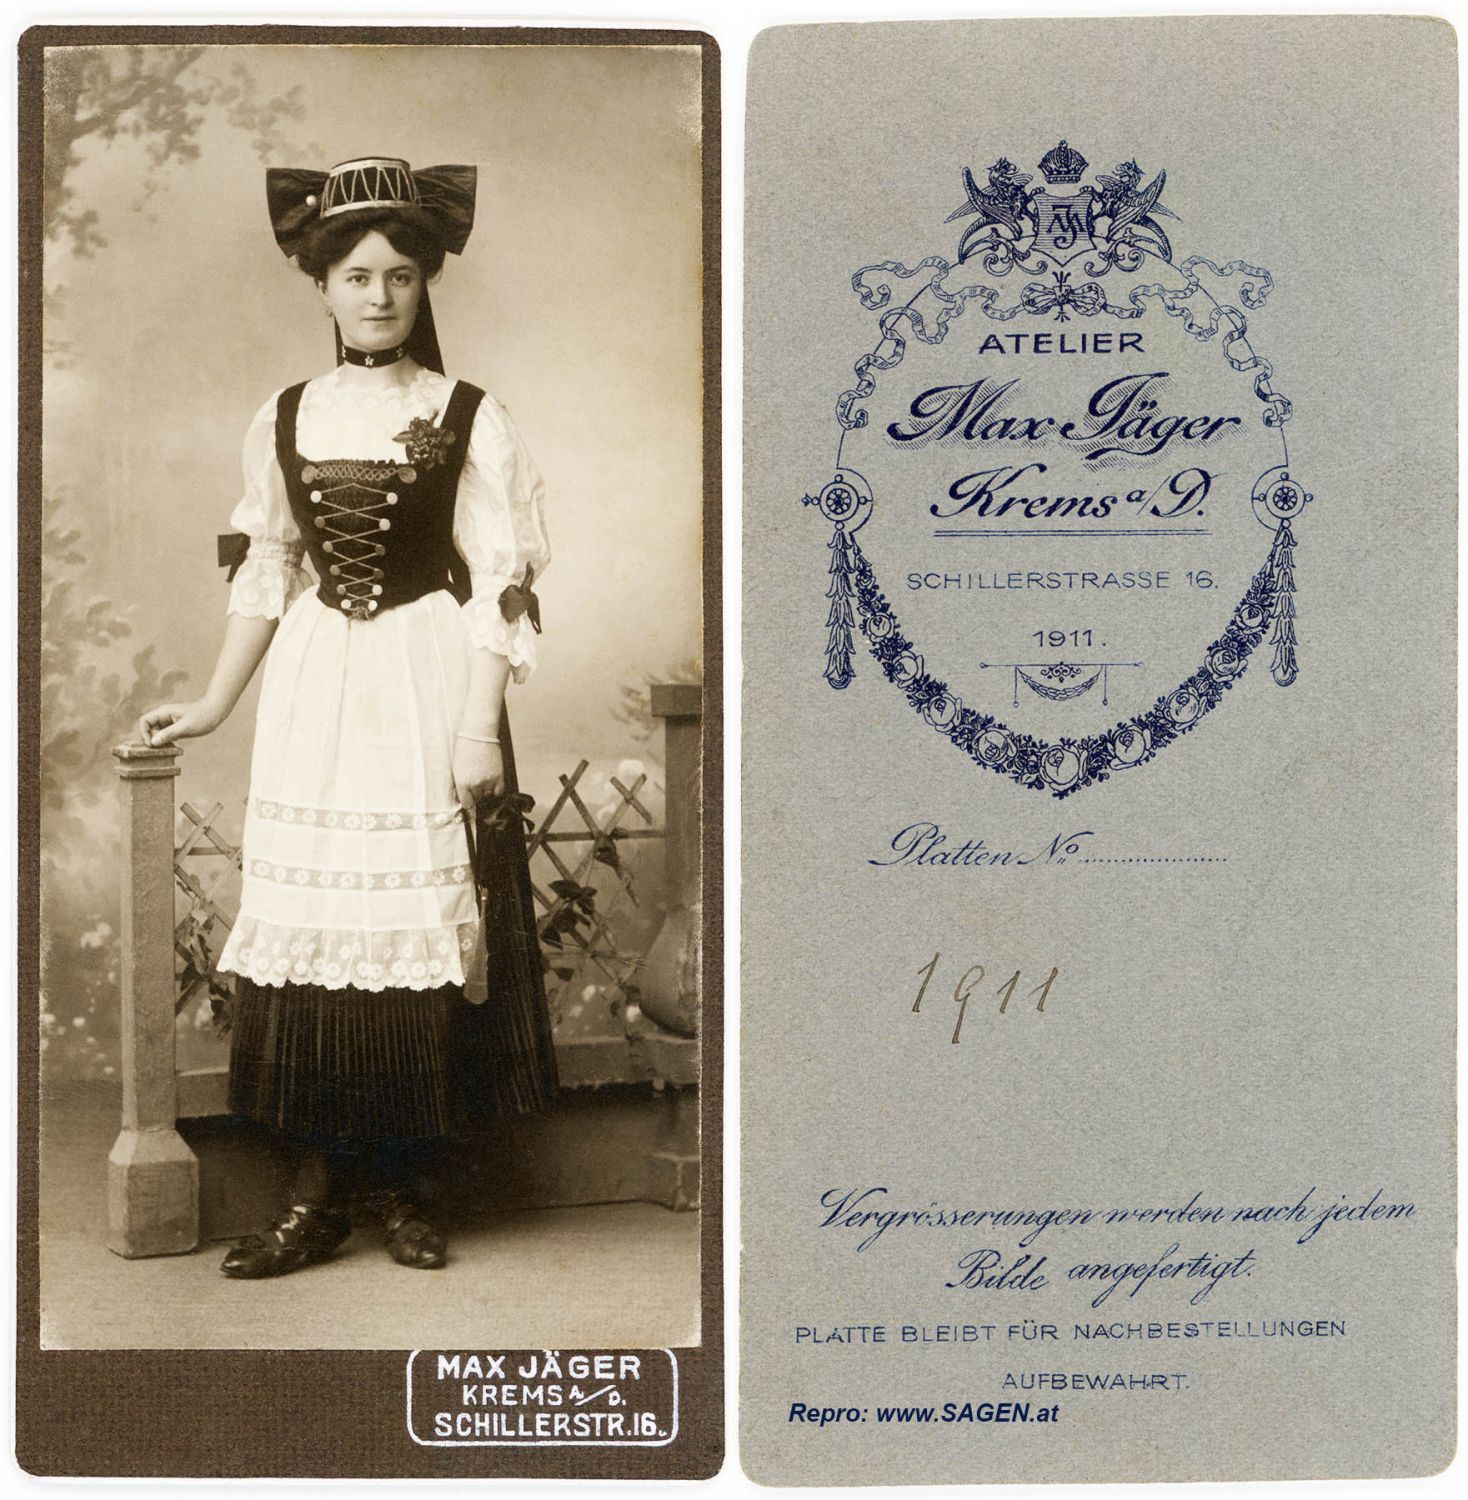 MAX JÄGER
KREMS A/D.
SCHILLERSTR.16.
ATELIER
Max Jäger
Krems a/D.
SCHILLERSTRASSE 16.
1911.
Platten No
1911
Vergrösserungen werden nach jedem
Bilde angefertigt.
PLATTE BLEIBT FÜR NACHBESTELLUNGEN
AUFBEWAHRT.
Repro: www.SAGEN.at